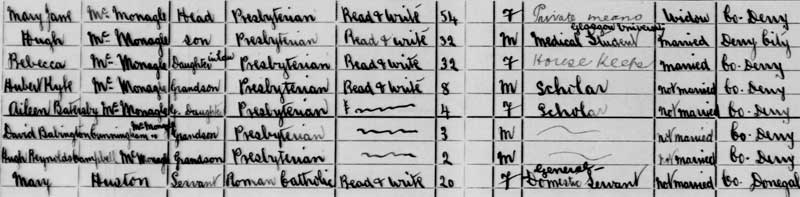 Mary Jane Mc Monagle Head Presbyterian Read & write 54 F Private means Widow Co. Derry
Hugh Mc Monagle son Presbyterian Read & write 32 M Medical Student Glasgow University married Derry City
Rebecca Mc Monagle Daughter in law Presbyterian Read & write 32 F House Keeps married Co. Derry
Hubert Kyle Mc Monagle Grandson Presbyterian Read & write 8 M Scholar not married Co. Derry
Aileen Batersby Mc Monagle G. Daughter Presbyterian 4 F Scholar not married Co. Derry
David Babington Cunningham Mc Monagle Grandson Presbyterian 3 M not married Co. Derry
Hugh Reynolds Campbell Mc Monagle Grandson Presbyterian 2 M not married Co. Derry
Mary Huston Servant Roman Catholic Read & write 20 F General Domestic Servant not married Co. Donegal